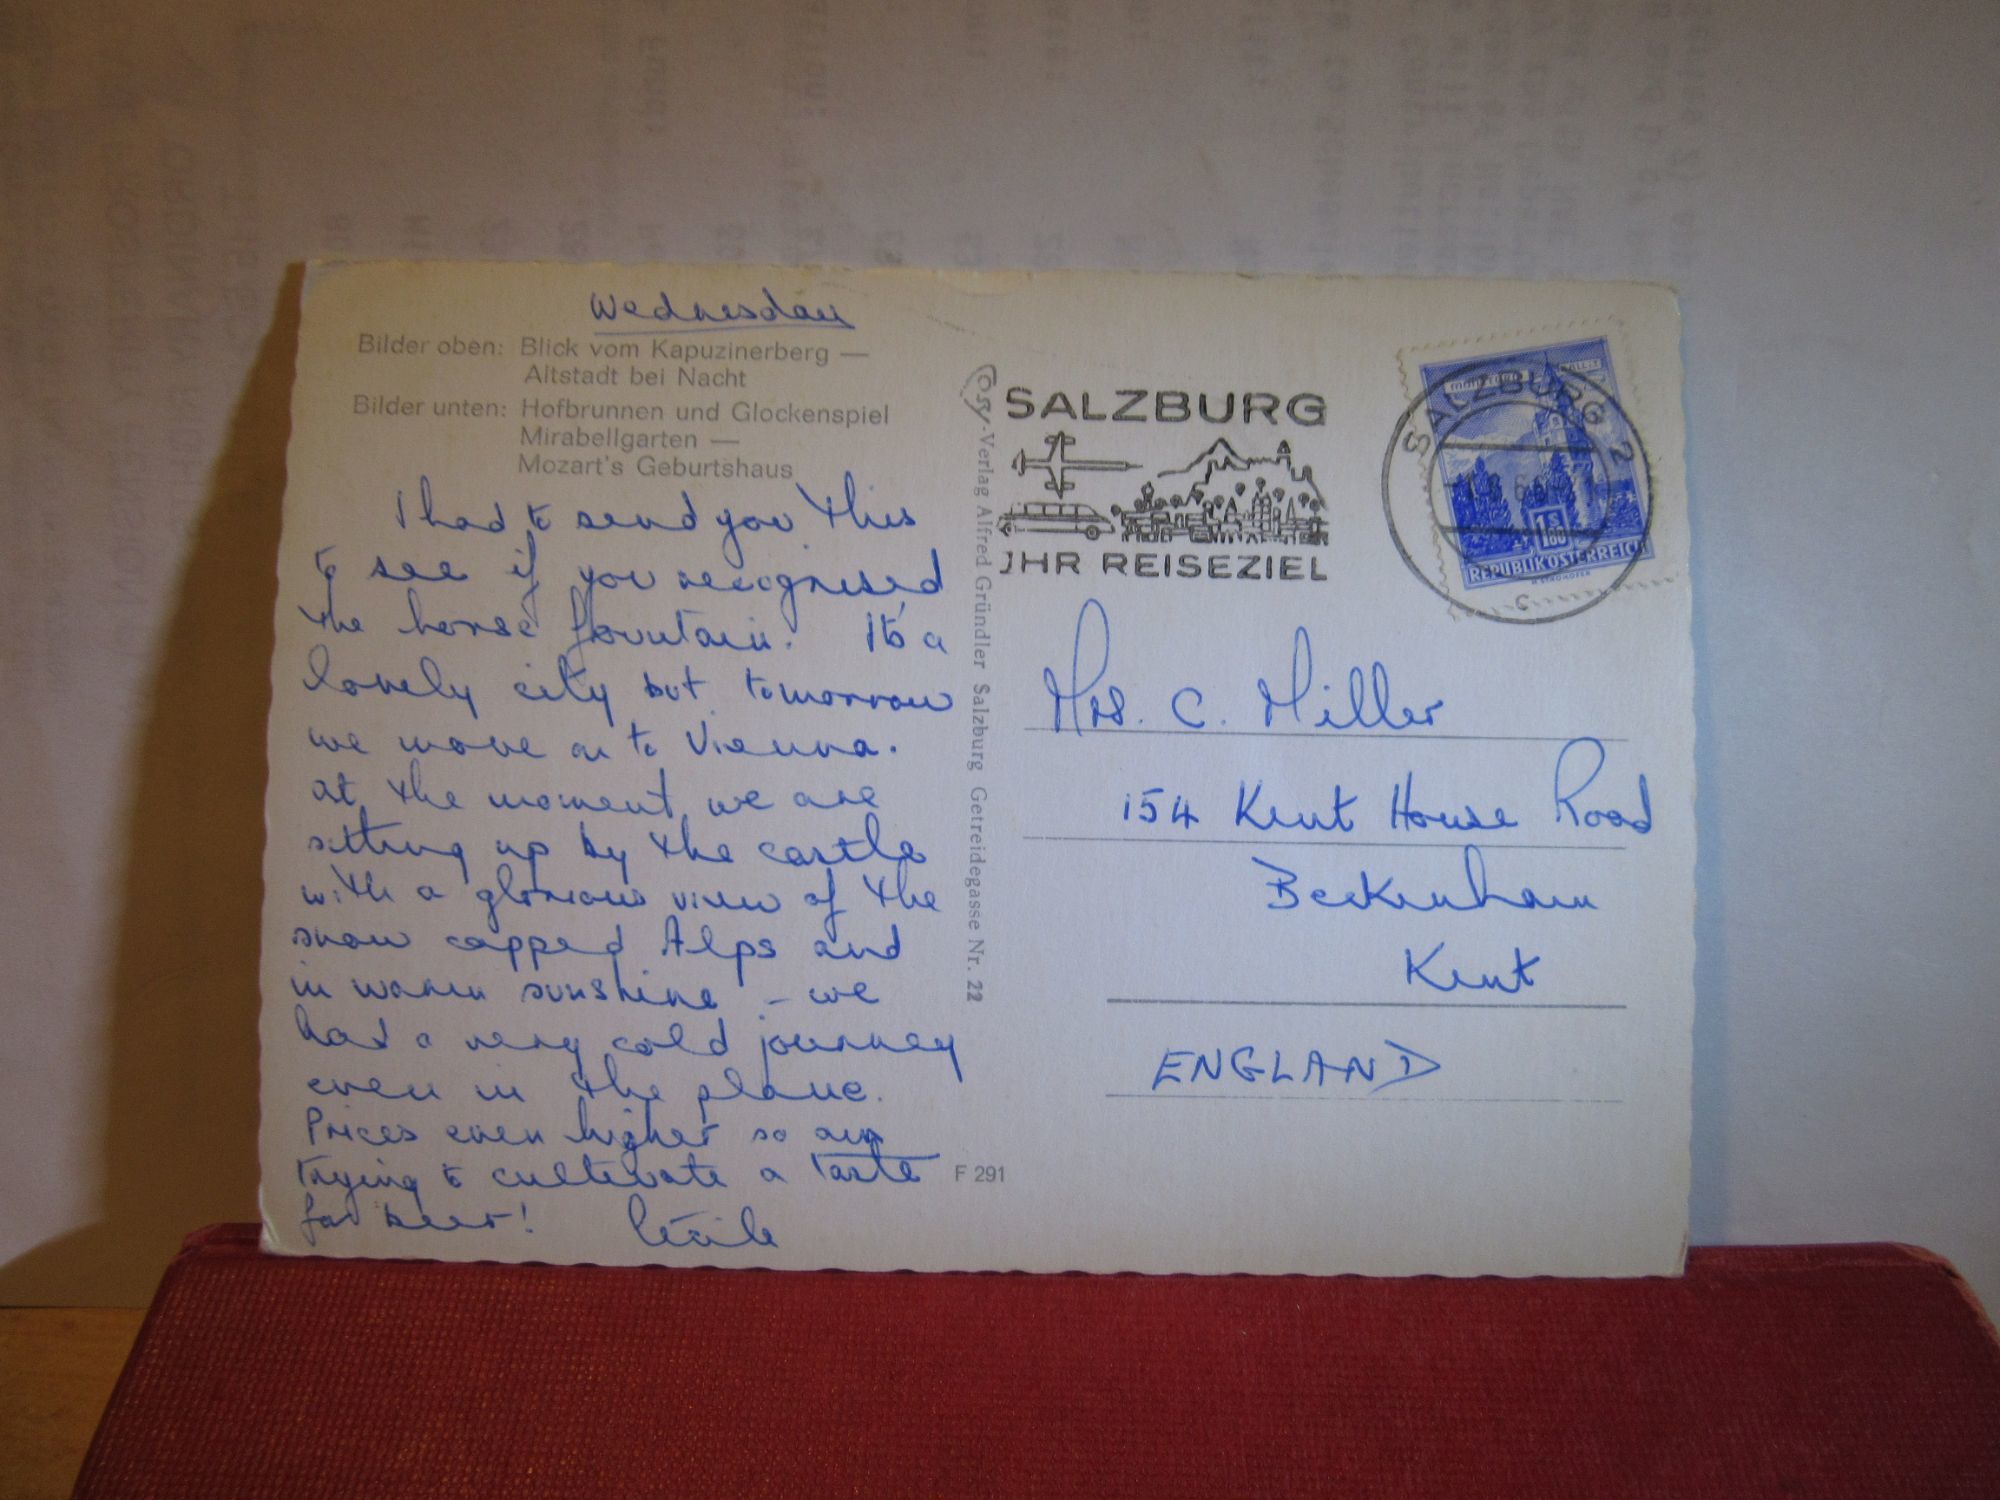 Wednesday
Bilder oben: Blick vom Kapuzinerberg —
Altstadt bei Nacht
Bilder unten: Hofbrunnen und Glockenspiel
Mirabellgarten —
Mozart's Geburtshaus
I had to send you this
to see if you recognised
the horse fountain. It's a
lovely city but tomorrow
we move on to Vienna.
At the moment we are
sitting up by the castle
with a glorious view of the
snow capped Alps and
in warm sunshine - we
had a very cold journey
even in the plane.
Prices even higher so am
trying to cultivate a taste
for beer! Cécile
Cosy-Verlag Alfred Gründler Salzburg Getreidegasse Nr. 22
F 291
SALZBURG
IHR REISEZIEL
SALZBURG 2
1 S 80
REPUBLIK ÖSTERREICH
Mrs. C. Miller
154 Kent House Road
Beckenham
Kent
ENGLAND